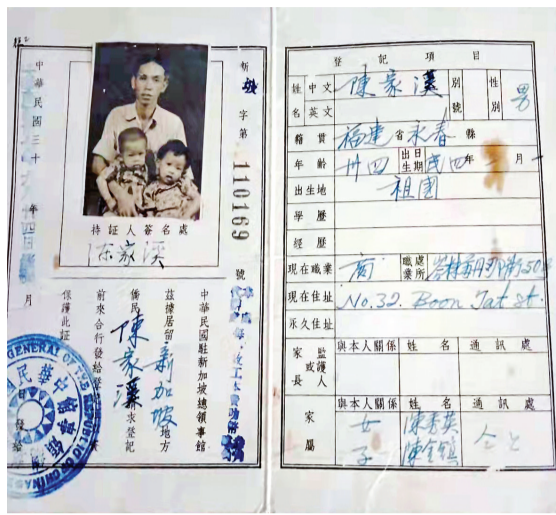 新
坡
字第
110169
號
持証人簽名處
陈家溪
中華民國駐新加坡總領事館
茲據居留新加坡地方
僑民陳家溪
請求登記
前來合行發給登
保護此証
中華民國三十
年
月
日
發給
GENERAL OF THE REPUBLIC OF CHINA
登記項目
姓名
中文
陳家溪
別號
性別
男
英文
籍貫
福建省永春縣
年齡
卅四
出生日期
民四年
月
出生地
祖國
學歷
經歷
現在職業
商
職業處所
現在住址
No.32. Boon Tat St.
永久住址
家長或監護人
與本人關係
姓名
通訊處
家屬
與本人關係
姓名
通訊處
女
陳秀英
子
陳金鎮
仝上